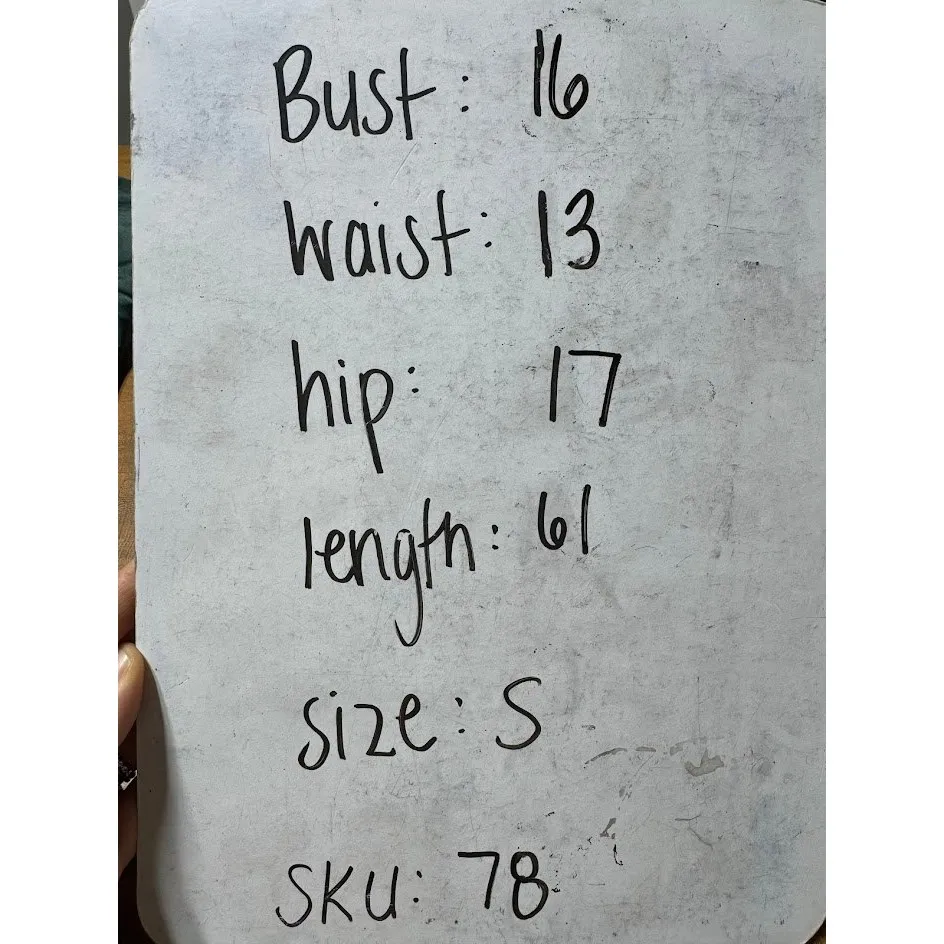 Bust: 16
waist: 13
hip: 17
length: 61
size: S
SKU: 78